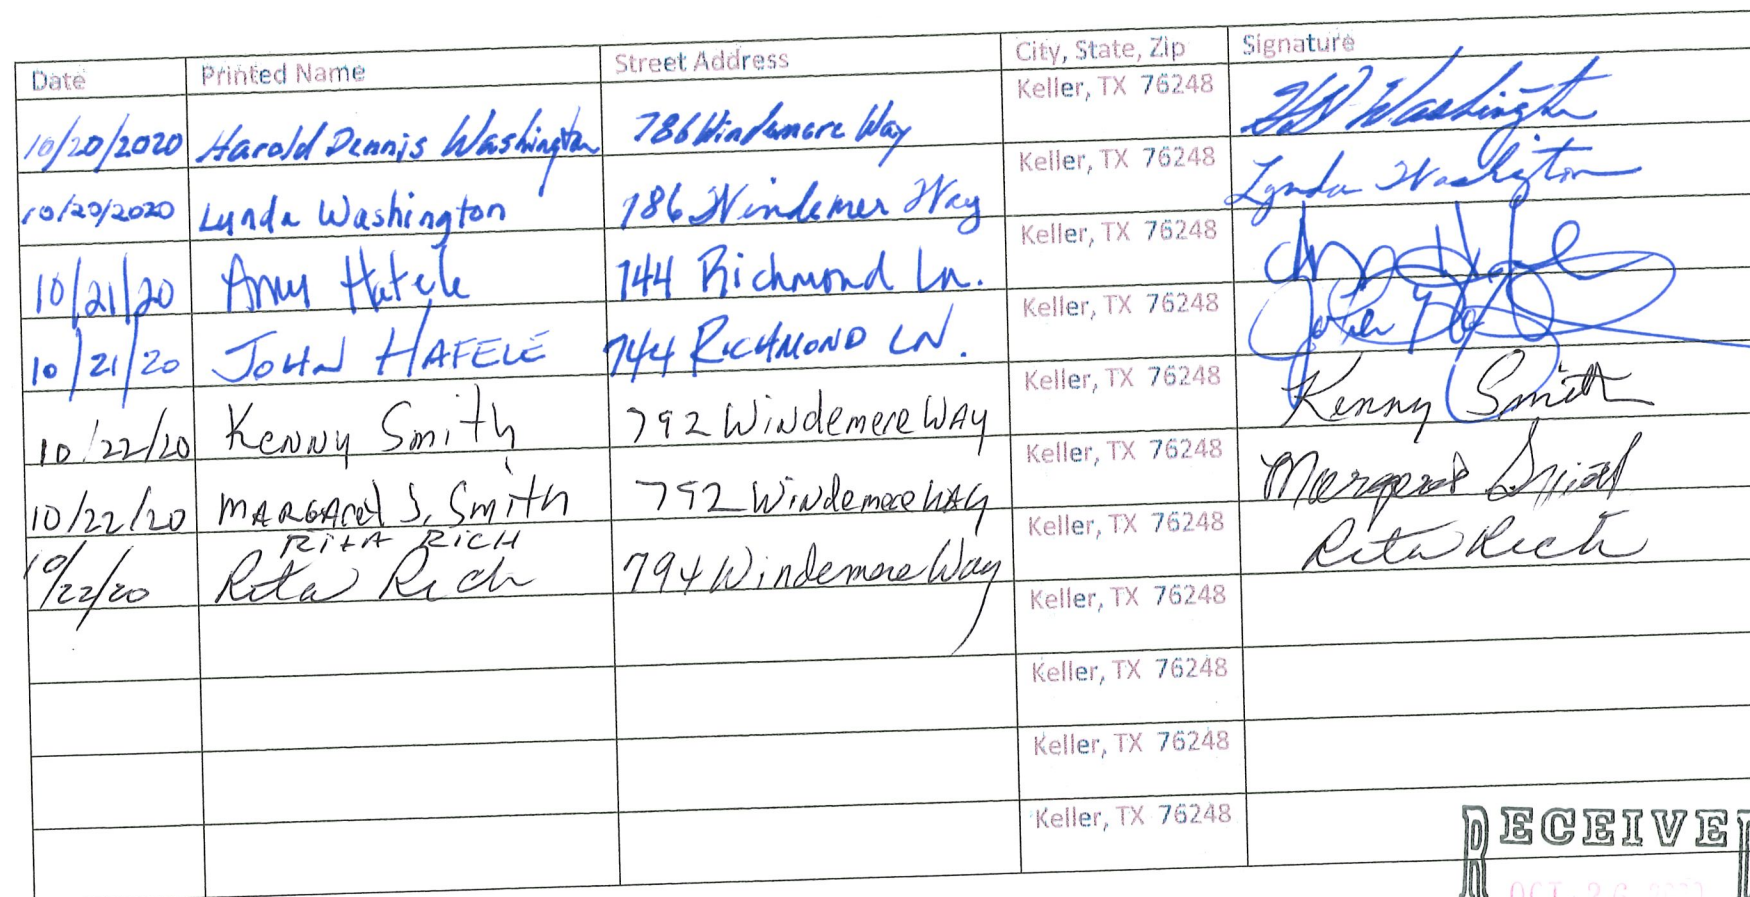 Date Printed Name Street Address City, State, Zip Signature
10/20/2020 Harold Dennis Washington 786 Windemere Way Keller, TX 76248 Washington
10/20/2020 Lynda Washington 786 Windemer Way Keller, TX 76248 Lynda Washington
10/21/20 Amy Hafele 744 Richmond Ln. Keller, TX 76248
10/21/20 JOHN HAFELE 744 RICHMOND LN. Keller, TX 76248
10/22/20 Kenny Smith 792 Windemere Way Keller, TX 76248 Kenny Smith
10/22/20 MARGARet S. Smith 792 Windemere Way Keller, TX 76248 Margaret Smith
RITA RICH
10/22/20 Rita Rich 794 Windemere Way Keller, TX 76248 Rita Rich
Keller, TX 76248
Keller, TX 76248
Keller, TX 76248
Keller, TX 76248
RECEIVED
OCT 26